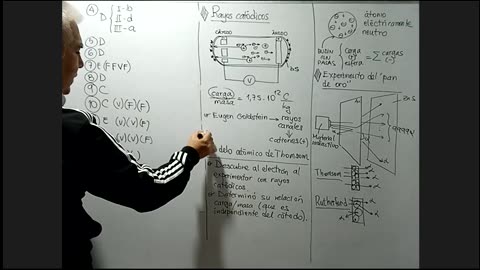 ④ D { I-b
II-d
III-a
⑤ D
⑥ D
⑦ E (FFVF)
⑧ D
⑨ C
⑩ C (V)(F)
E (V)(F)
(V)(V)
(V)(F)
Rayos catódicos
cátodo
ánodo
V
carga/masa = 1,75 · 10¹² C/kg
Eugen Goldstein → rayos canales
↳ cationes (+)
delo atómico de Thomson
Descubre al electrón al
experimentar con rayos
catódicos.
Determinó su relación
carga/masa (que es
independiente del cátodo).
átomo
eléctricamente
neutro
BUDÍN CON PASAS { carga (+) esfera = Σ cargas (-)
Experimento del "pan
de oro"
Material
radiactivo
Thomson
Rutherford